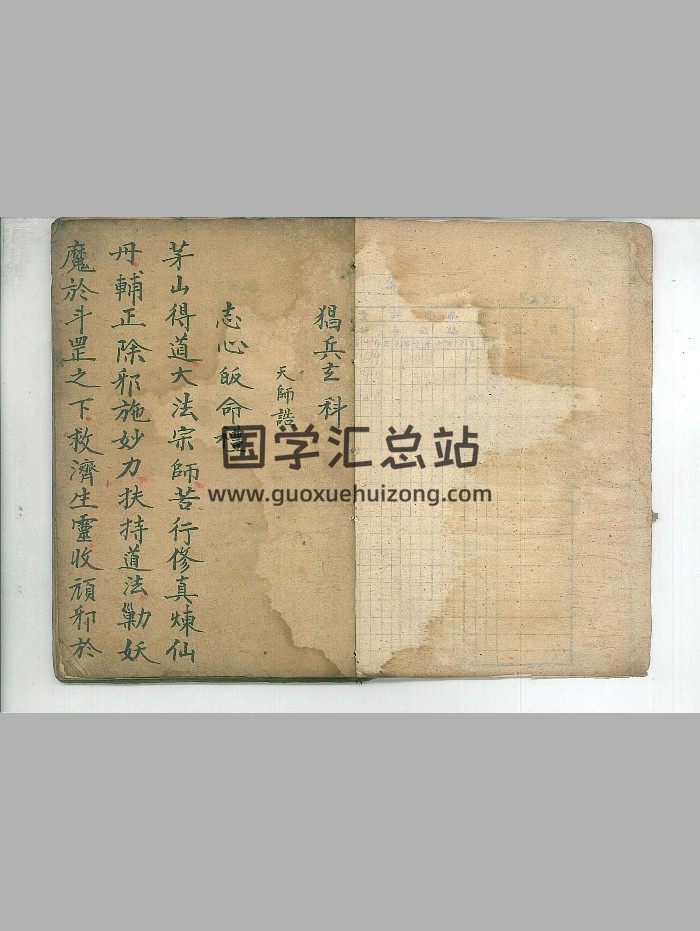 猖兵玄科
天師誥
志心皈命禮
茅山得道大法宗師苦行修真煉仙
丹輔正除邪施妙力扶持道法勦妖
魔於斗罡之下救濟生靈收頑邪於
国学汇总站
www.guoxuehuizong.com